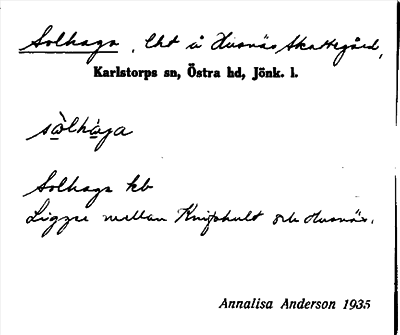 Solhaga, lht å Husnäs Skattegård,
Karlstorps sn, Östra hd, Jönk. l.
sòlhàga
Solhaga kb
Ligger mellan Knipshult och Husnäs.
Annalisa Anderson 1935